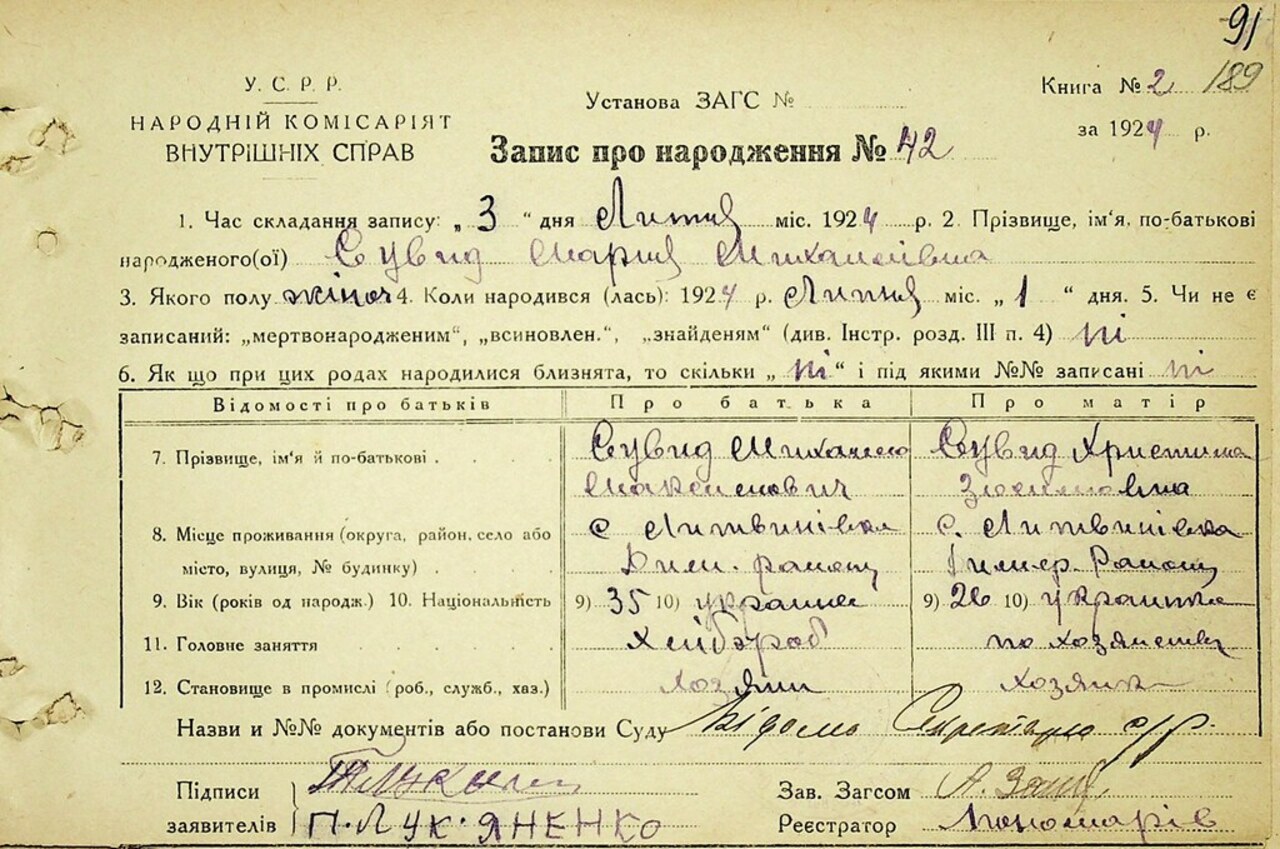 91
У. С. Р. Р.
НАРОДНІЙ КОМІСАРІЯТ
ВНУТРІШНІХ СПРАВ
Установа ЗАГС №
Книга № 2 189
за 1924 р.
Запис про народження № 42
1. Час складання запису: „ 3 “ дня Липня міс. 1924 р. 2. Прізвище, ім'я, по-батькові
народженого(ої) Сувид Мария Михайлівна
3. Якого полу жіноч 4. Коли народився (лась): 1924 р. Липня міс. „ 1 “ дня. 5. Чи не є
записаний: „мертвонародженим“, „всиновлен.“, „знайденям“ (див. Інстр. розд. III п. 4) ні
6. Як що при цих родах народилися близнята, то скільки „ ні “ і під якими №№ записані ні
Відомості про батьків Про батька Про матір
7. Прізвище, ім'я й по-батькові . . . . Сувид Михайло Сувид Христина
Максимович Зосимовна
8. Місце проживання (округа, район, село або с Литвинівка с. Литвинівка
місто, вулиця, № будинку) . . . . Дим. району Димер. Району
9. Вік (років од народж.) 10. Національність 9) 35 10) українец 9) 26 10) українка
11. Головне заняття . . . . . Хейбороб по хозяйству
12. Становище в промислі (роб., служб., хаз.) хозяин хозяйка
Назви и №№ документів або постанови Суду Відомь Секретарю с/р.
Підписи
заявителів П. ЛУК'ЯНЕНКО
Зав. Загсом А.
Реєстратор Пономарів